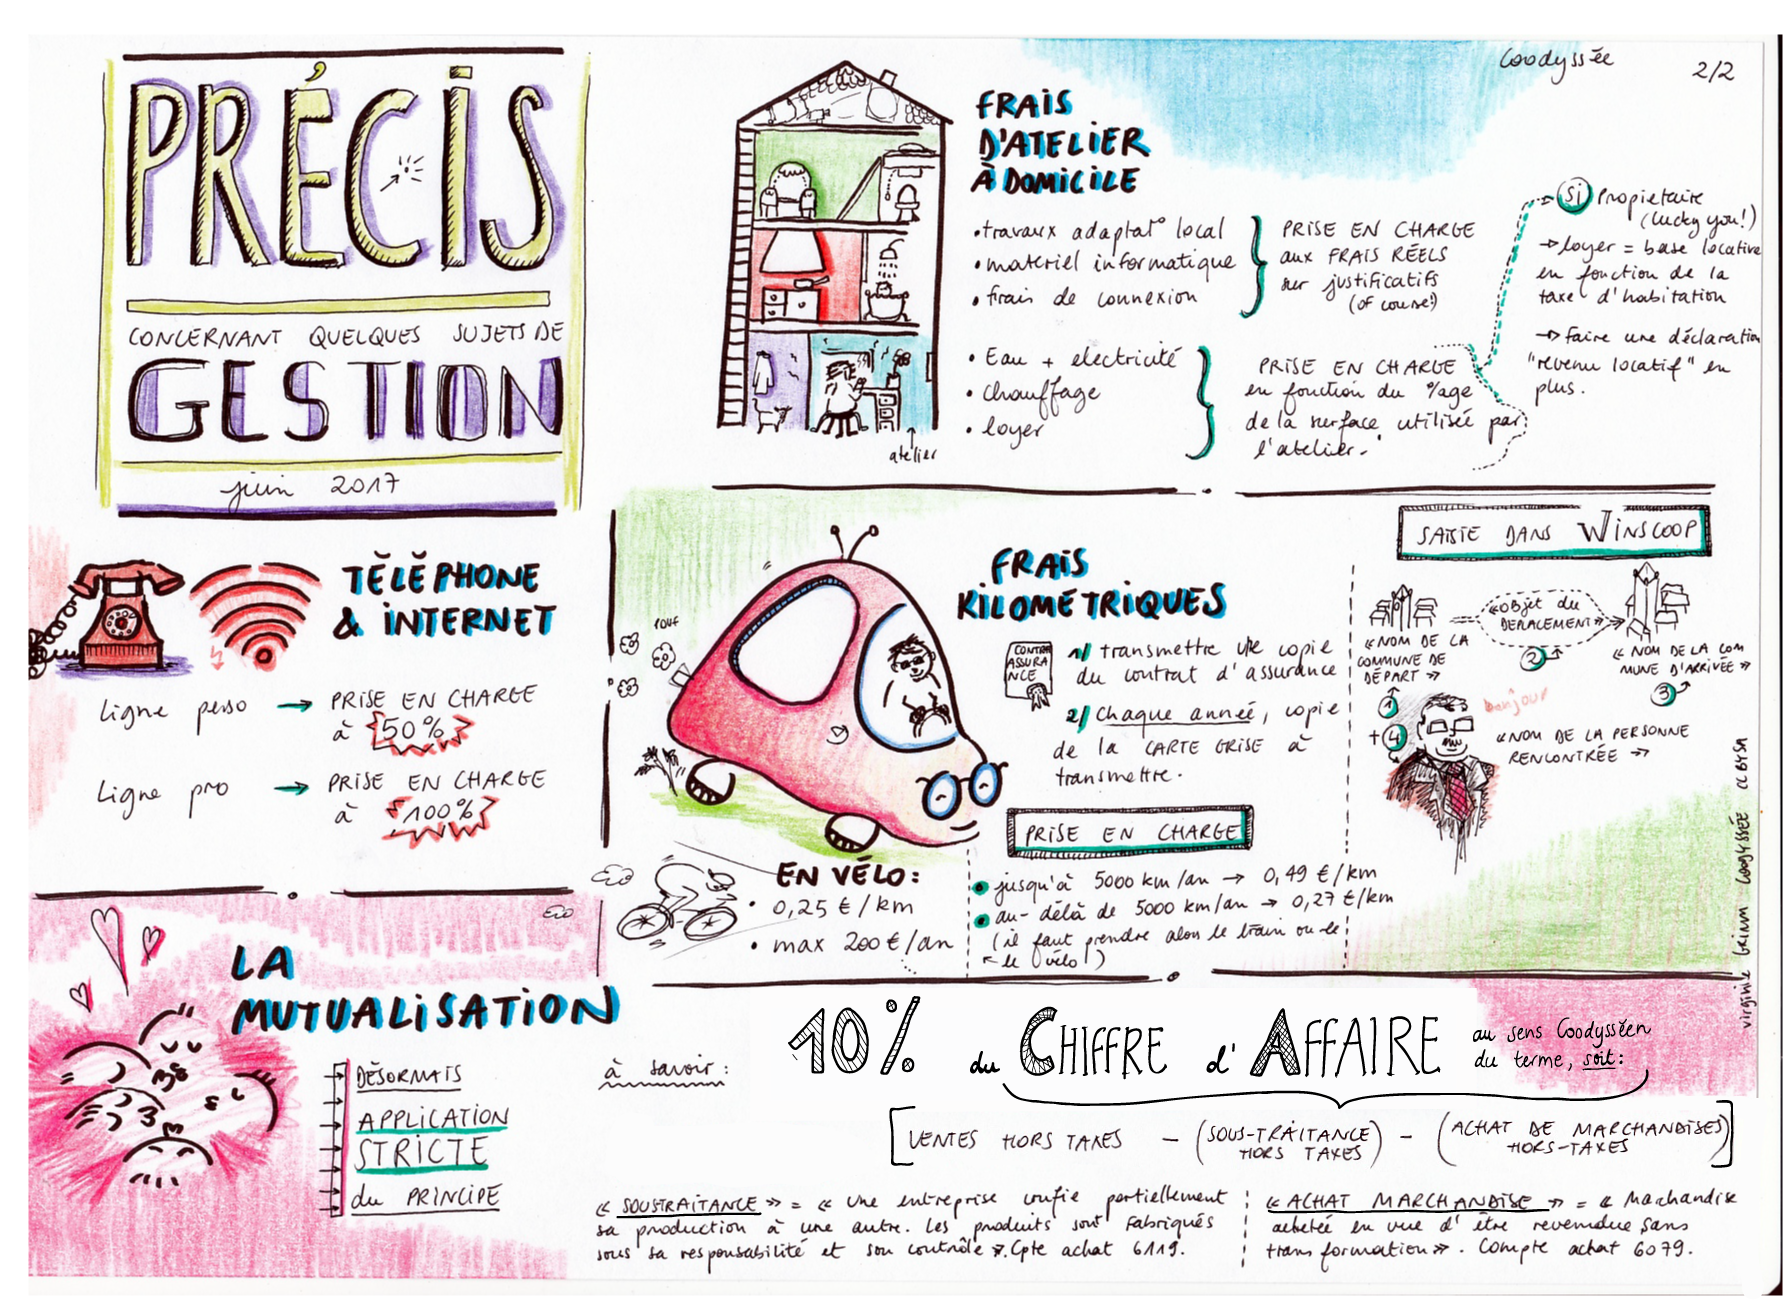 Coodyssée
2/2
PRÉCIS
CONCERNANT QUELQUES SUJETS DE
GESTION
juin 2017
FRAIS
D'ATELIER
À DOMICILE
• travaux adaptat° local
• matériel informatique
• frais de connexion
PRISE EN CHARGE
aux FRAIS RÉELS
sur justificatifs
(of course!)
• Eau + electricité
• Chauffage
• loyer
PRISE EN CHARGE
en fonction du %age
de la surface utilisée par
l'atelier.
atelier
Si Propietaire
(lucky you!)
→ loyer = base locative
en fonction de la
taxe d'habitation
→ faire une déclaration
"revenu locatif" en
plus.
TÉLÉPHONE
& INTERNET
Ligne perso → PRISE EN CHARGE
à 50%
Ligne pro → PRISE EN CHARGE
à 100%
FRAIS
KILOMÉTRIQUES
POUF
CONTRAT
ASSURA
NCE
1/ transmettre une copie
du contrat d'assurance
2/ Chaque année, copie
de la CARTE GRISE à
transmettre.
PRISE EN CHARGE
• jusqu'à 5000 km/an → 0,49 €/km
• au-délà de 5000 km/an → 0,27 €/km
(il faut prendre alors le train ou le
← le vélo!)
EN VÉLO:
• 0,25 €/km
• max 200€/an
SAISIE DANS WINSCOOP
«NOM DE LA
COMMUNE DE
DÉPART»
1
«OBJET DU
DÉPLACEMENT»
2
«NOM DE LA COM
MUNE D'ARRIVÉE»
3
bonjour
+4
«NOM DE LA PERSONNE
RENCONTRÉE»
virginie GRIMM COODYSSÉE CC BY SA
LA
MUTUALISATION
DÉSORMAIS
APPLICATION
STRICTE
du PRINCIPE
à savoir:
10% du CHIFFRE d'AFFAIRE au sens Coodysséen
du terme, soit:
[VENTES HORS TAXES - (SOUS-TRAITANCE HORS TAXES) - (ACHAT DE MARCHANDISES HORS-TAXES)]
« SOUSTRAITANCE » = « Une entreprise confie partiellement
sa production à une autre. Les produits sont fabriqués
sous sa responsabilité et son contrôle ». Cpte achat 6119.
« ACHAT MARCHANDISE » = « Marchandise
achetée en vue d'être revendue sans
transformation ». Compte achat 6079.